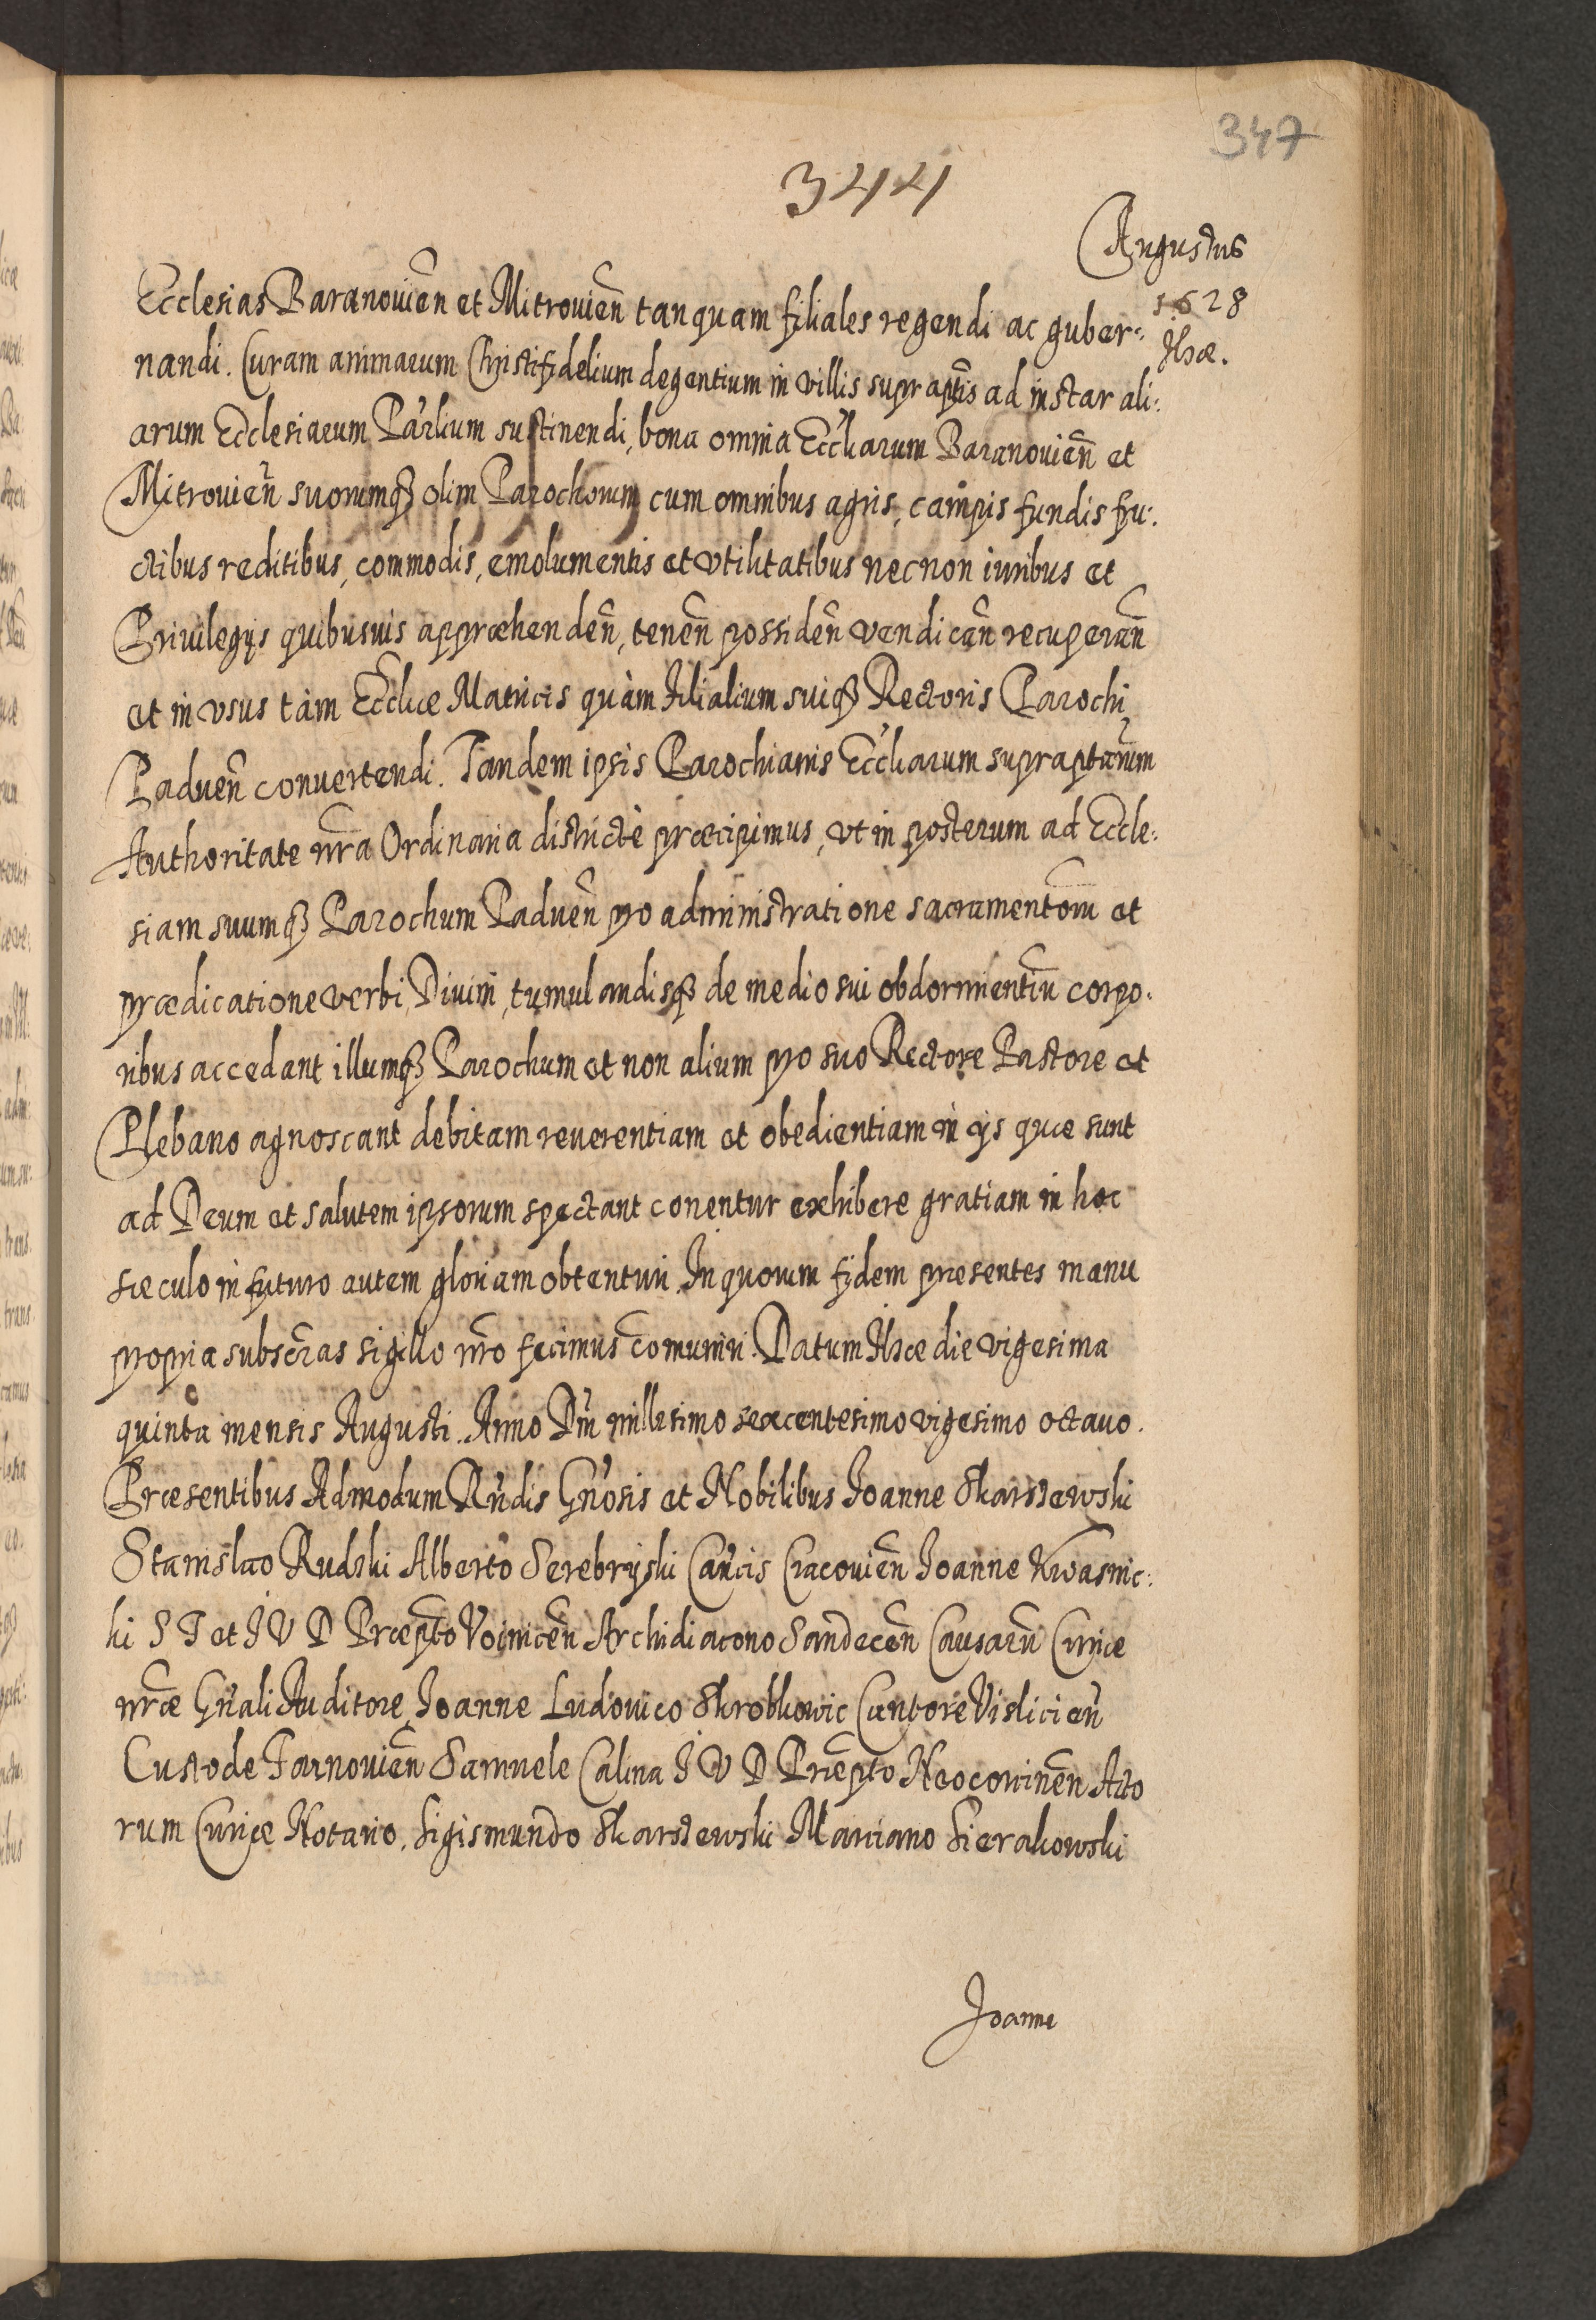 347
344
Augustus
1628
Ilzæ.
Ecclesias Baranovien̄ et Mitrovien̄ tanquam filiales regendi ac guber:
nandi. Curam animarum Christifidelium degentium in villis supraptis ad instar ali:
arum Ecclesiarum Parlium sustinendi, bona omnia Eccliarum Baranovien̄ et
Mitrovien̄ suorumqȝ olim Parochorum cum omnibus agris, campis fundis fru:
ctibus reditibus, commodis, emolumentis et vtilitatibus necnon iuribus et
Privilegijs quibusuis appræhenden̄, tenen̄ possiden̄ vendican̄ recuperan̄
et in vsus tàm Eccliæ Matricis quàm filialium suiqȝ Rectoris Parochi
Paduen̄ convertendi. Tandem ipsis Parochianis Eccliarum supraptarum
Authoritate nr̄a Ordinaria districtè præcipimus, vt in posterum ad Eccle:
siam suumqȝ Parochum Paduen̄ pro administratione sacramentōru et
prædicatione verbi Divini, tumulandisqȝ de medio sui obdormientiu̅ corpo:
ribus accedant illumqȝ Parochum et non alium pro suo Rectore Pastore et
Plebano agnoscant debitam reuerentiam et obedientiam in ijs quæ sunt
ad Deum et salutem ipsorum spectant conentur exhibere gratiam in hoc
sæculo in futuro autem gloriam obtenturi. In quorum fidem præsentes manu
propria subscr̄as sigillo nr̄o fecimus com̄uniri. Datum Ilzæ die vigesima
quinta mensis Augusti. Anno Dn̄i millesimo sexcentesimo vigesimo octauo.
Præsentibus Admodum Rn̄dis Gn̄osis et Nobilibus Ioanne Skarszewski
Stanislao Rudzki Alberto Serebryski Can̄cis Cracovien̄ Ioanne Kwasnic:
ki S T et I V D Præpto Voinicen̄ Archidiacono Sandecen̄ Causaru̅ Curiæ
nr̄æ Gn̄ali Auditore, Ioanne Ludovico Skrobkowic Cantore Vislicien̄
Custode Tarnovien̄ Samuele Calina I V D Præpto Neocorcinen̄ Acto
rum Curiæ Notario, Sigismundo Skarszewski Marciano Sierakowski
Ioanne